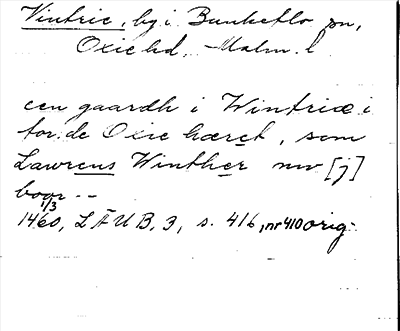 Vintrie, by i Bunkeflo sn,
Oxie hd, Malm. l
een gaardh i Wintriæ i
for:de Oxie hæret, som
Lawrens Winther nw [j]
boor --
1/3
1460, LÄUB, 3, s. 416, nr 410 orig.